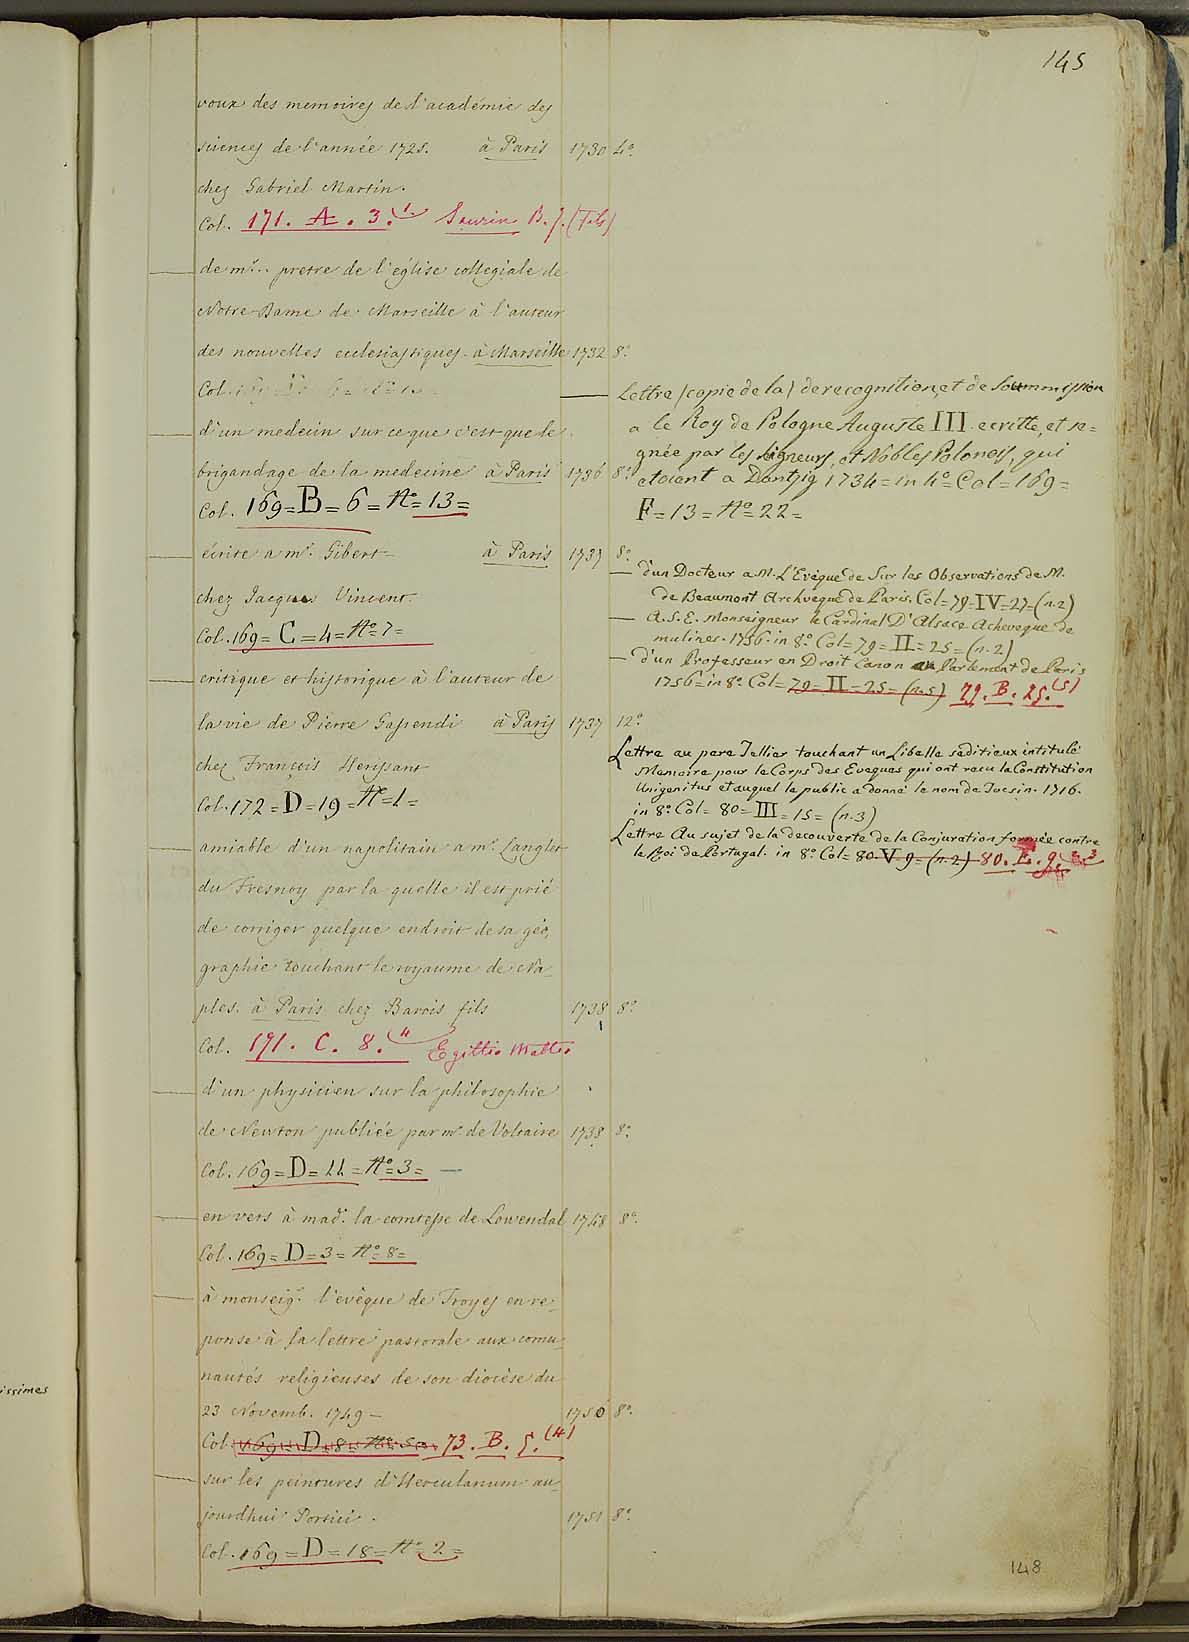 145
voux des memoires de l'académie des
sciences de l'année 1725. à Paris 1730 4°.
chez Gabriel Martin.
Col. 171. A. 3. 1. Saurin B. J. (Fils)
de mr... pretre de l'église collegiale de
Notre-Dame de Marseille à l'auteur
des nouvelles ecclesiastiques - à Marseille 1732 8°.
Col.
d'un medecin sur ce que c'est que le
brigandage de la medecine à Paris 1736 8°.
Col. 169=B=6=N°=13=
écrite a mr. Gibert- à Paris 1737 8°.
chez Jacques Vincent.
Col. 169=C=4=N°7=
critique et historique à l'auteur de
la vie de Pierre Gassendi à Paris 1737 12°.
chez François Herissant
Col. 172=D=19=N°=1=
amiable d'un napolitain a mr. Langlet
du Fresnoy par la quelle il est prié
de corriger quelque endroit de sa géo,
graphie touchant le royaume de Na-
ples. à Paris chez Barois fils 1738 8°.
Col. 171. C. 8. 4 Egittio Matteo
d'un physicien sur la philosophie
de Newton publiée par mr. de Voltaire 1738 8°.
Col. 169=D=11=N°=3=
en vers à mad. la comtesse de Lowendal 1748 8°.
Col. 169=D=3=N°=8=
à monseigr. l'evêque de Troyes en re-
ponse à la lettre pastorale aux comu-
nautés religieuses de son diocèse du
23 Novemb. 1749 - 1750 8°.
Col. 169=D=8=N°=5= 73. B. 5. (4)
sur les peintures d'Herculanum au-
jourdhui Portici. 1751 8°.
Col. 169=D=18=N°=2=
Lettre (copie de la) de recognition, et de Soummission
a le Roy de Pologne Auguste III ecritte, et si=
gnée par les Signeurs, et Nobles Polonois, qui
etoient a Dantzig 1734=in 4°=Col=169=
F=13=N°=22=
d'un Docteur a M. L'Evêque de Sur les Observations de M.
de Beaumont Archveque de Paris. Col=79=IV=27=(n.2)
A. S. E. Monseigneur le Cardinal D'Alsace Acheveque de
malines. 1756. in 8°. Col=79=II=25=(n.2)
d'un Professeur en Droit Canon au Parlemant de Paris
1756=in 8°. Col=79=II=25=(n.5) 79. B. 25. (5)
Lettre au pere Tellier touchant un Libelle seditieux intitulé
Memoire pour le Corps des Eveques qui ont recu la Constitution
Unigenitus et auquel le public a donné le nom de Tocsin. 1716.
in 8°. Col=80=III=15=(n.3)
Lettre Au sujet de la decouverte de la Conjuration formée contre
le Roi de Portugal. in 8°. Col=80-V-9=(n.2) 80. E. 9. 3
issimes
148